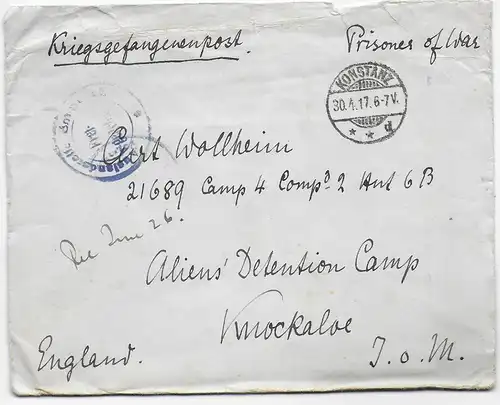 Kriegsgefangenenpost.
Prisoner of War
KONSTANZ
30.4.17.6-7V.
* * d
Curt Wollheim
21689 Camp 4 Comp? 2 Hut 6B
Rec June 26.
Aliens' Detention Camp
Knockaloe
England.
I.o.M.